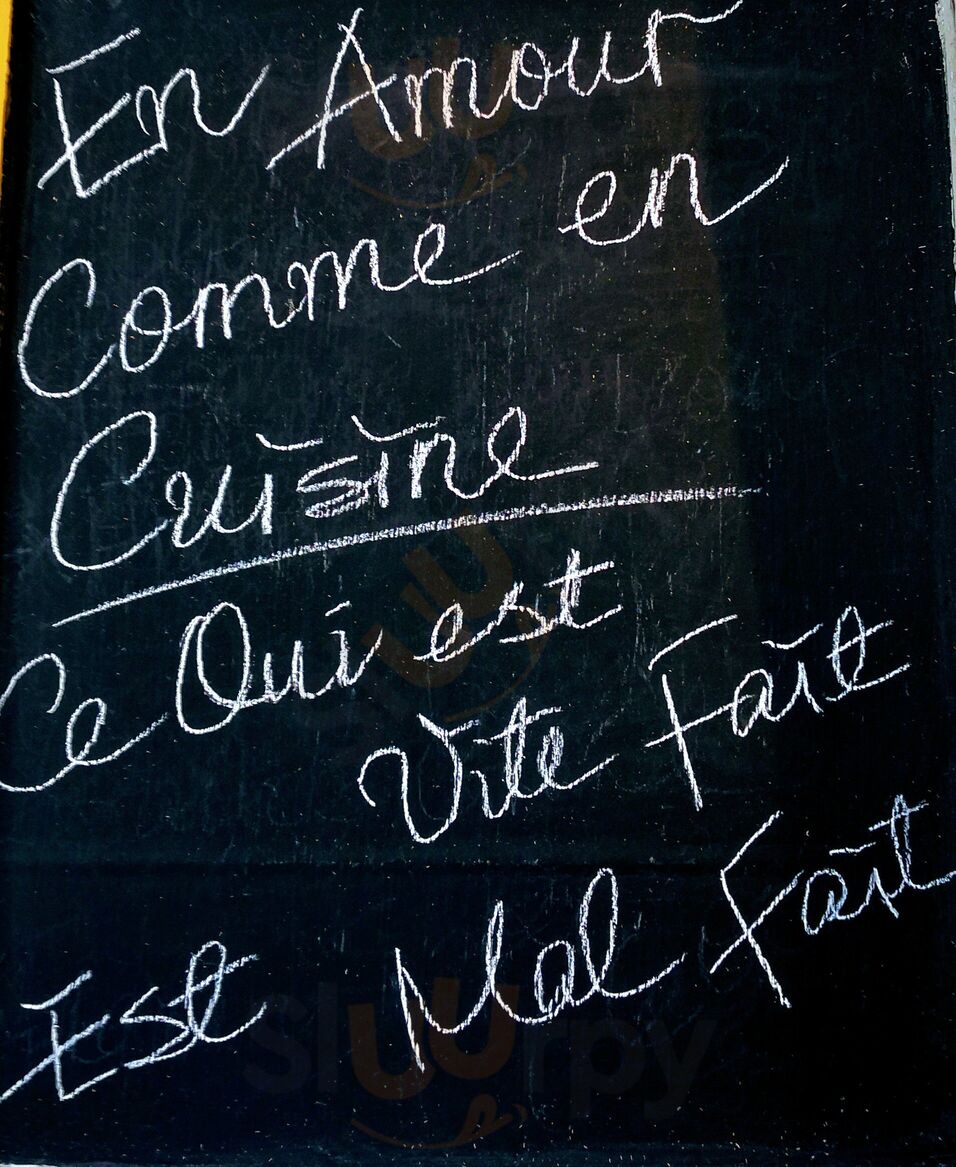 En Amour
Comme en
Cuisine
Ce Qui est
Vite Fait
Est Mal Fait
Sluurpy